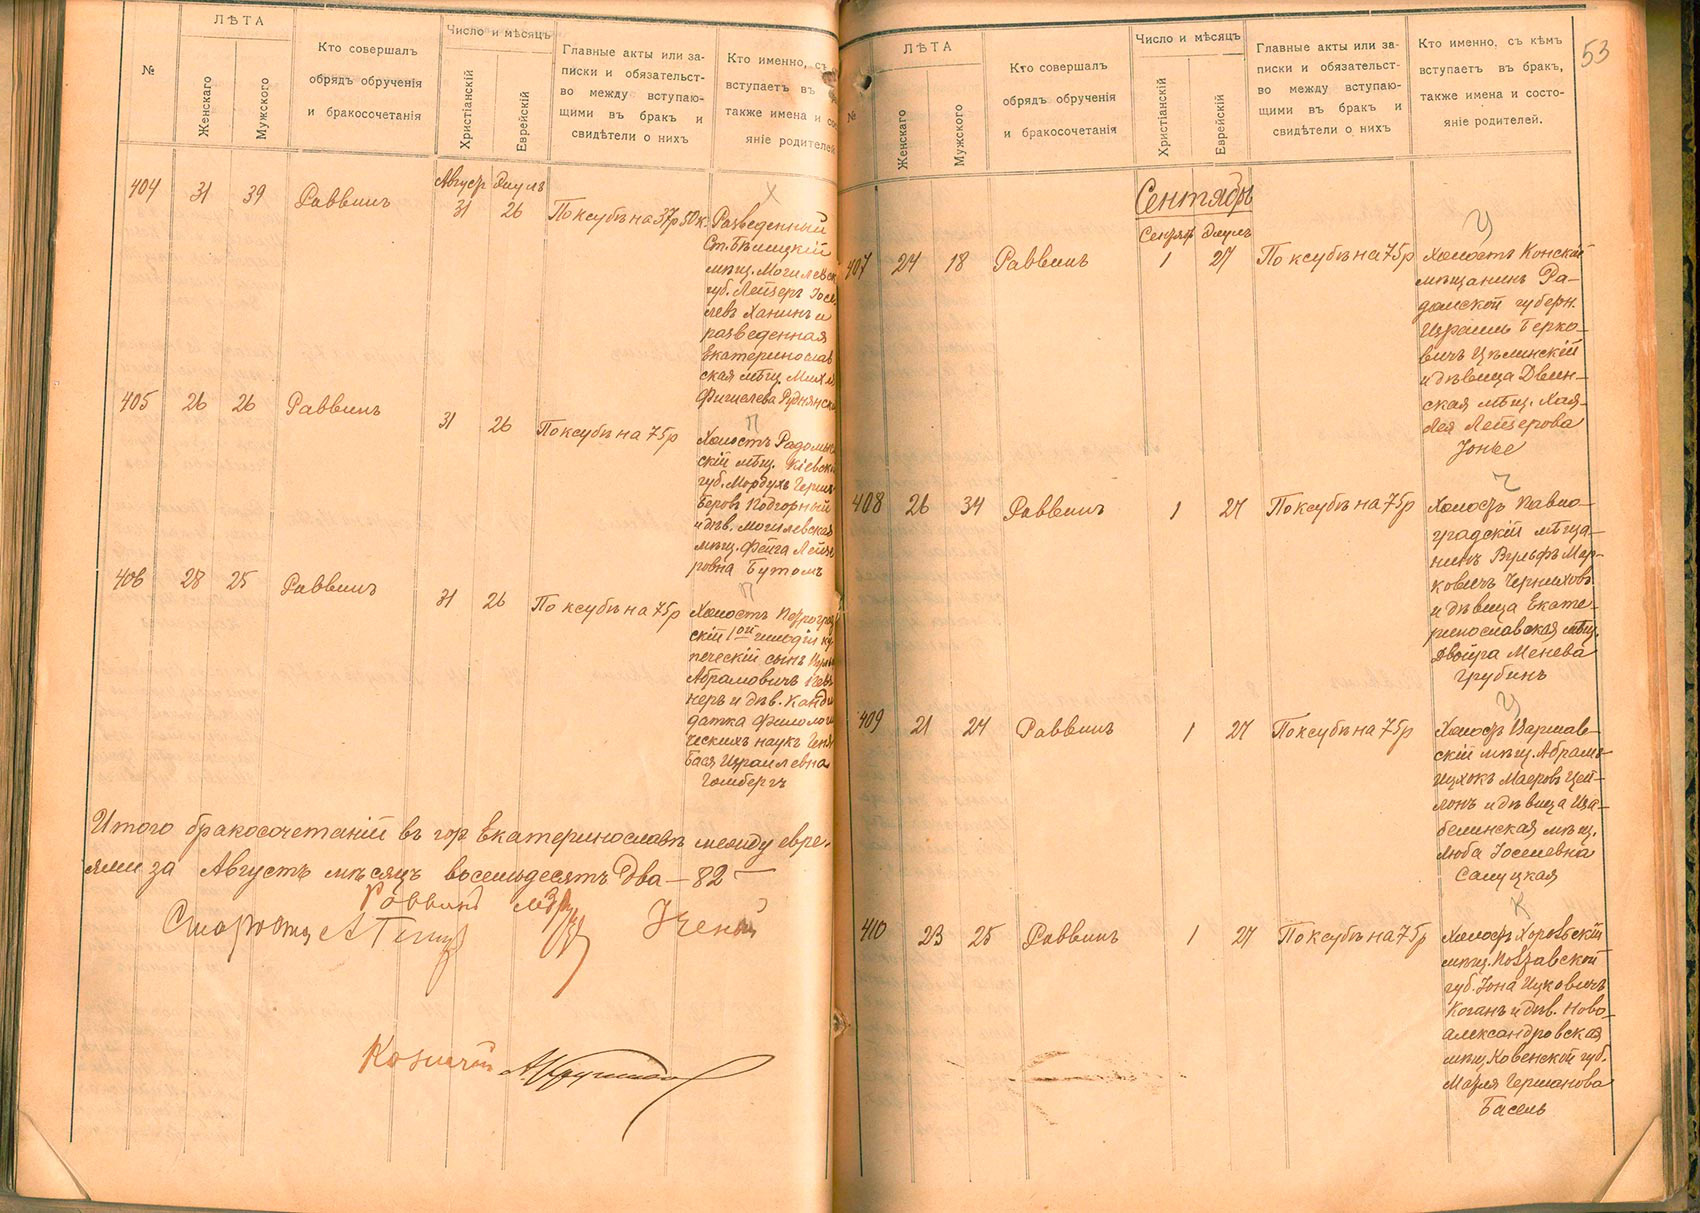 №
ЛѢТА
Женскаго
Мужского
Кто совершалъ
обрядъ обрученія
и бракосочетанія
Число и мѣсяцъ
Христіанскій
Еврейскій
Главные акты или за-
писки и обязательст-
во между вступаю-
щими въ бракъ и
свидѣтели о нихъ
Кто именно, съ
вступаетъ въ
также имена и сос
яніе родителей
404 31 39 Раввинъ
Август Элулъ
31 26 По ксубѣ на 37р 50к.
Разведенный
Ст. Бѣлицкій
мѣщ. Могилевск
губ. Лейзеръ Іосе
левъ Ханинъ и
разведенная
Екатеринослав
ская мѣщ. Михля
Фишелева Руднянск
405 26 26 Раввинъ 31 26 По ксубѣ на 75р
П
Холостъ Радомысль
скій мѣщ. Кіевск
губ. Мордухъ Герш
Беровъ Подгорный
и дѣв. Могилевская
мѣщ. Фейга Лейзе
ровна Бутомъ
406 28 25 Раввинъ 31 26 По ксубѣ на 75р
П
Холостъ Петроград
скій 1ой гильдіи ку
печескій сынъ
Абрамовичъ
керъ и дѣв. Канди
датка Филологи
ческихъ наукъ Геня
Бася Израилевна
Гомбергъ
Итого бракосочетаній въ гор Екатеринославѣ между евре-
ями за Августъ мѣсяцъ восемьдесятъ два — 82 —
Раввинъ
Староста Ученый
Казначей
53
№
ЛѢТА
Женскаго
Мужского
Кто совершалъ
обрядъ обрученія
и бракосочетанія
Число и мѣсяцъ
Христіанскій
Еврейскій
Главные акты или за-
писки и обязательст-
во между вступаю-
щими въ бракъ и
свидѣтели о нихъ
Кто именно, съ кѣмъ
вступаетъ въ бракъ,
также имена и состо-
яніе родителей.
Сентябрь
Сентяб Элулъ
407 24 18 Раввинъ 1 27 По ксубѣ на 75р
Ц
Холостъ Конскій
мѣщанинъ Ра-
домской губерн.
Израиль Берко-
вичъ Цѣлинскій
и дѣвица Двин-
ская мѣщ. Хая-
Лея Лейзерова
Іонье
408 26 34 Раввинъ 1 27 По ксубѣ на 75р
Ч
Холостъ Павло-
градскій мѣща-
нинъ Вульфъ Мер-
ковичъ Черниховъ
и дѣвица Екате-
ринославская мѣщ.
Двойра Менева
Грубинъ
409 21 24 Раввинъ 1 27 По ксубѣ на 75р
Ц
Холостъ Варшав-
скій мѣщ. Абрамъ-
Ицхокъ Маеровъ Цей-
лонъ и дѣвица Иза-
белинская мѣщ.
Люба Іоселевна
Салуцкая
410 23 25 Раввинъ 1 27 По ксубѣ на 75р
К
Холостъ Хорольскій
мѣщ. Полтавской
губ. Іона Ицковичъ
Коганъ и дѣв. Ново-
александровская
мѣщ. Ковенской губ.
Марля Германова
Басель